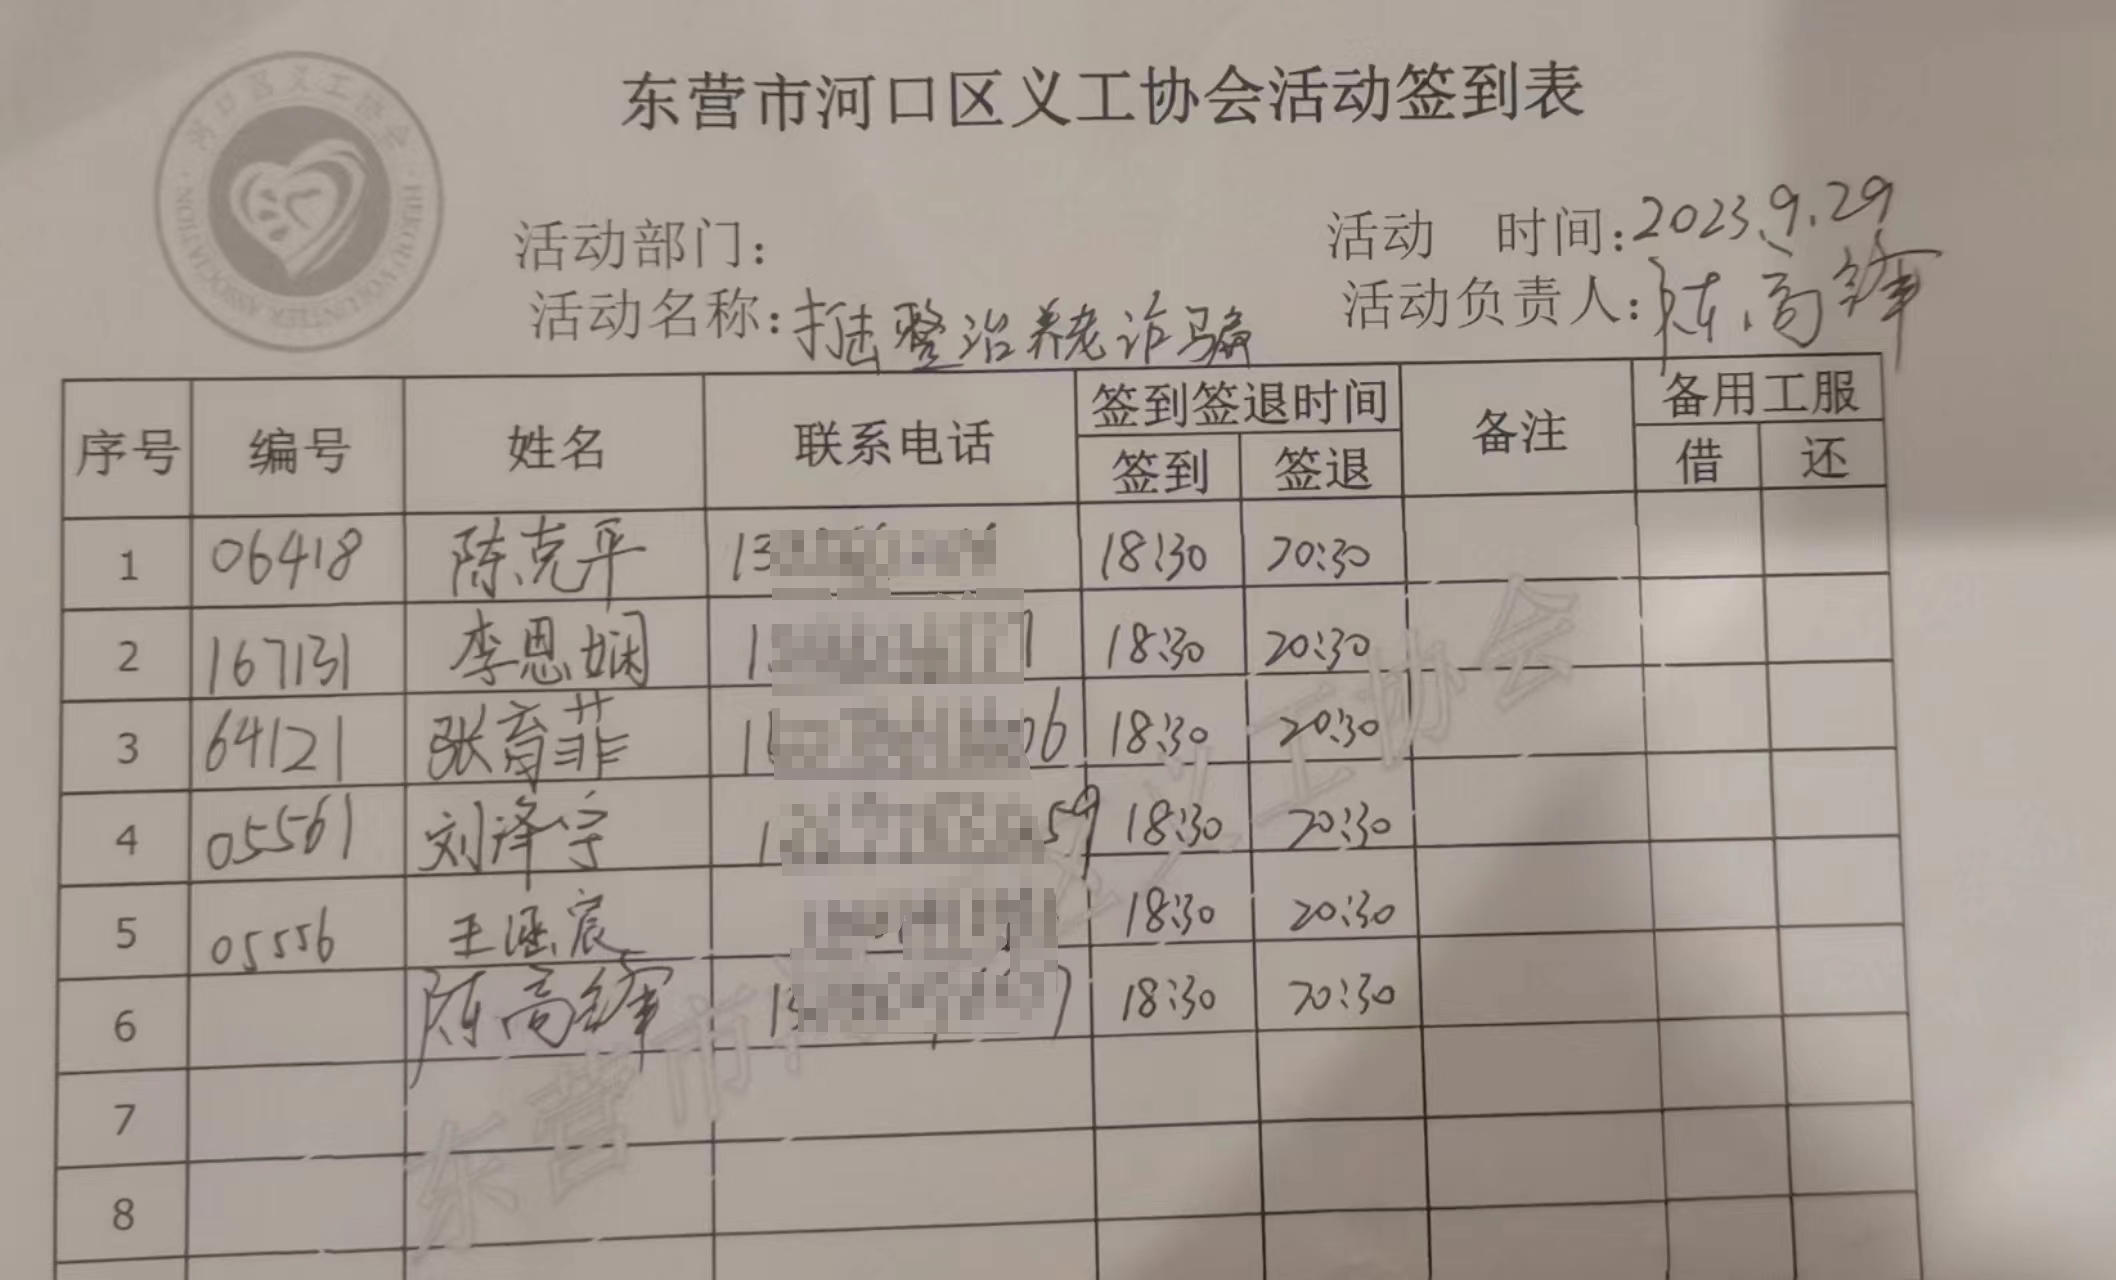 东营市河口区义工协会活动签到表
河口区义工协会
HEKOU VOLUNTEER ASSOCIATION
活动部门：
活动 时间：2023.9.29
活动名称：打击整治养老诈骗
活动负责人：陈高峰
序号 编号 姓名 联系电话 签到签退时间 备注 备用工服
签到 签退 借 还
1 06418 陈克平 13 18:30 20:30
2 167131 李恩娴 1 18:30 20:30
3 64121 张育菲 1 06 18:30 20:30
4 05561 刘泽宇 1 59 18:30 20:30
5 05556 王涵宸 18:30 20:30
6 陈高峰 13 18:30 20:30
7
8
东营市 义工协会